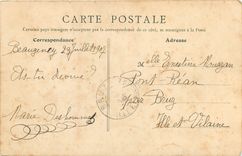 CARTE POSTALE
Certains pays étrangers n'acceptent pas la correspondance de ce côté, se renseigner à la Poste
Correspondance
Adresse
Beaugency 29 Juillet
As-tu deviné?
Marie
Elle Ernestine
Pont-Réan
par Bruz
Ille et Vilaine